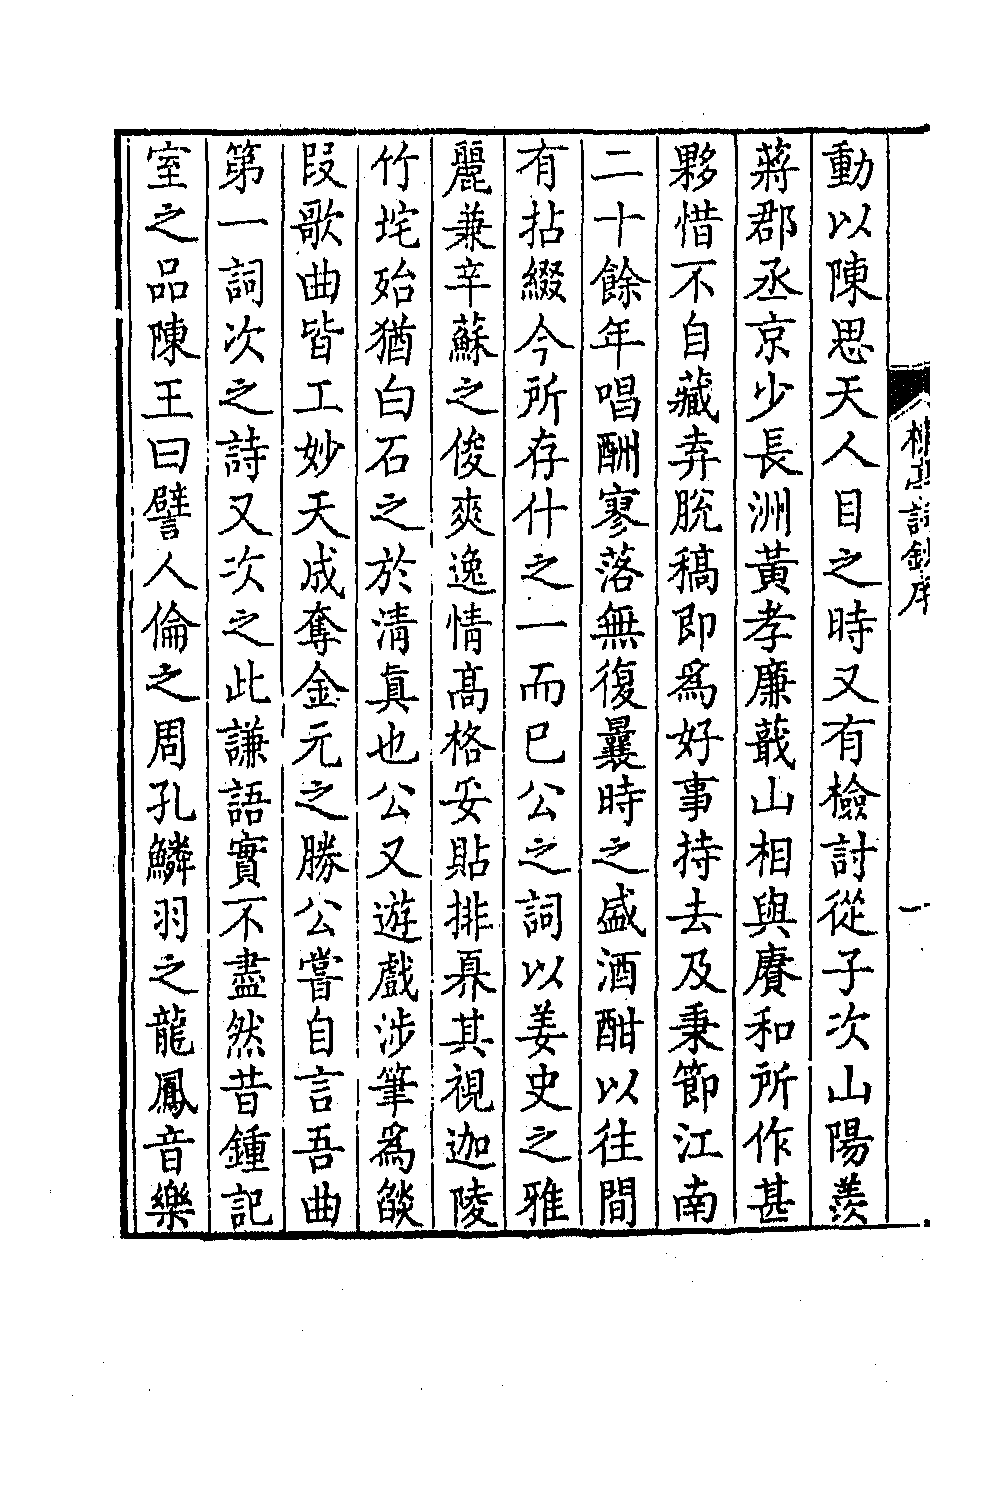 動以陳思天人目之時又有檢討從子次山陽羨
蔣郡丞京少長洲黃孝廉蕺山相與賡和所作甚
夥惜不自藏弆脫稿即為好事持去及秉節江南
二十餘年唱酬寥落無復曩時之盛酒酣以往間
有拈綴今所存什之一而已公之詞以姜史之雅
麗兼辛蘇之俊爽逸情高格妥貼排奡其視迦陵
竹垞殆猶白石之於清真也公又遊戲涉筆為燄
段歌曲皆工妙天成奪金元之勝公嘗自言吾曲
第一詞次之詩又次之此謙語實不盡然昔鍾記
室之品陳王曰譬人倫之周孔鱗羽之龍鳳音樂
楝亭詞鈔序
一